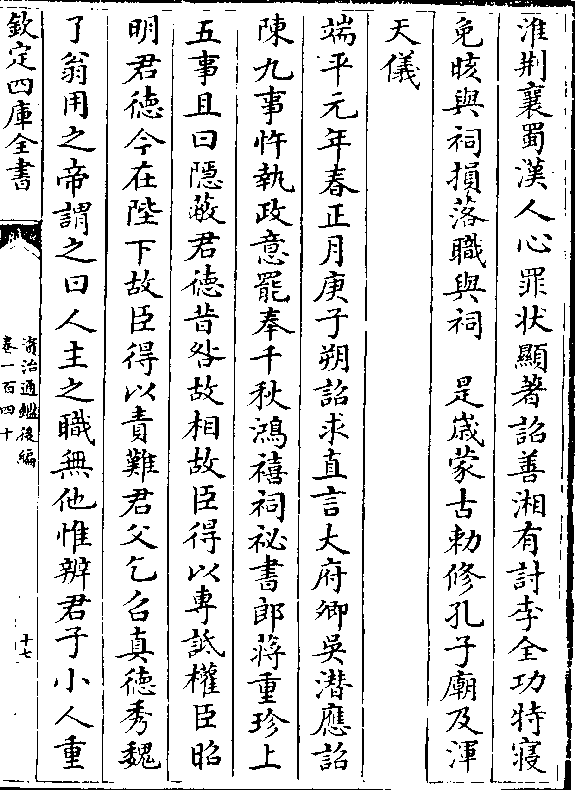 淮荆襄蜀漢人心罪状顯著詔善湘有討李全功特寢
免晐與祠損落職與祠　是嵗蒙古勅修孔子廟及渾
天儀
端平元年春正月庚子朔詔求直言大府卿吳潜應詔
陳九事忤執政意罷奉千秋鴻禧祠祕書郎蔣重珍上
五事且曰隱蔽君德昔咎故相故臣得以專詆權臣昭
明君德今在陛下故臣得以責難君父乞召真德秀魏
了翁用之帝謂之曰人主之職無他惟辨君子小人重
欽定四庫全書
資治通鑑後編
卷一百四十
十七